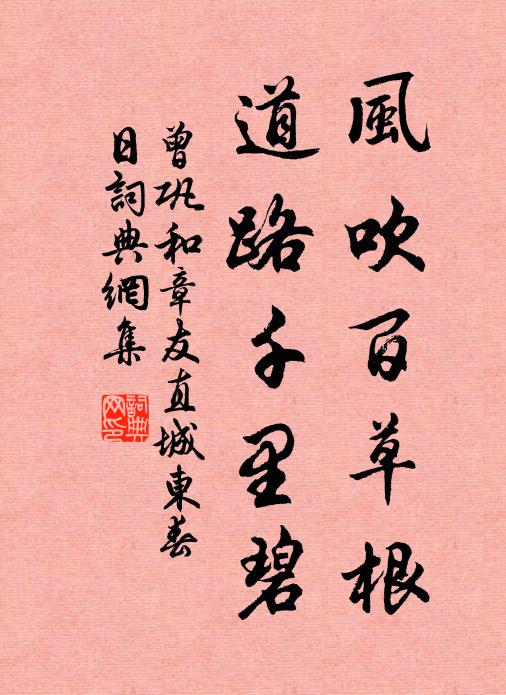 風吹百草根
道路千里碧
曾巩和章友直城東春
日詞典網集
詞典
网印